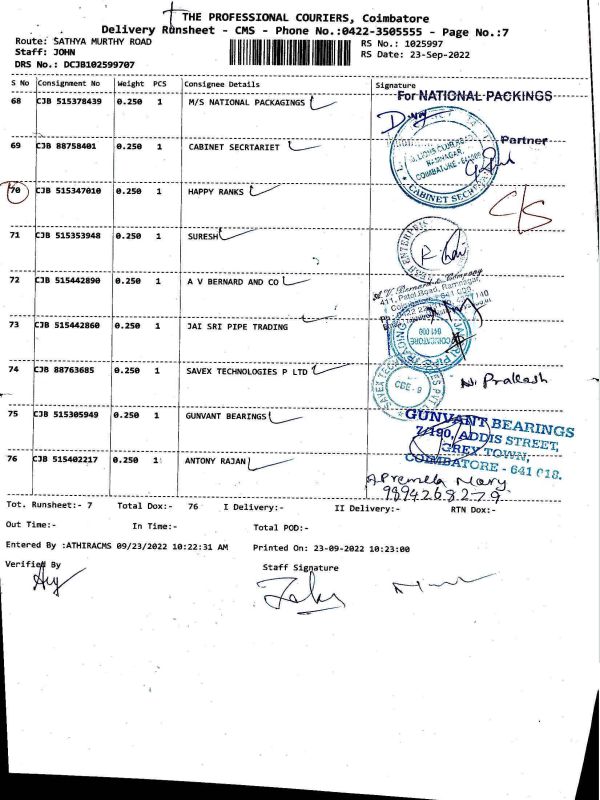 THE PROFESSIONAL COURIERS, Coimbatore
Delivery Runsheet - CMS - Phone No.:0422-3505555 - Page No.:7
Route: SATHYA MURTHY ROAD
Staff: JOHN
DRS No.: DCJB102599707
RS No.: 1025997
RS Date: 23-Sep-2022
S No Consignment No Weight PCS Consignee Details Signature
68 CJB 515378439 0.250 1 M/S NATIONAL PACKAGINGS
For NATIONAL PACKINGS
Partner
69 CJB 88758401 0.250 1 CABINET SECRTARIET
RAMNAGAR
COIMBATORE - 641009
CABINET SECRETARIAT
70 CJB 515347010 0.250 1 HAPPY RANKS
C/S
71 CJB 515353948 0.250 1 SURESH
72 CJB 515442890 0.250 1 A V BERNARD AND CO
A.V. Bernard & Company
411, Patel Road, Ramnagar,
Coimbatore - 641 009.
73 CJB 515442860 0.250 1 JAI SRI PIPE TRADING
JAI SRI PIPE TRADING
COIMBATORE
641 009
74 CJB 88763685 0.250 1 SAVEX TECHNOLOGIES P LTD
SAVEX TECHNOLOGIES PVT LTD
CBE - 9
N. Prakash
75 CJB 515305949 0.250 1 GUNVANT BEARINGS
GUNVANT BEARINGS
7/190, ADDIS STREET,
GREY TOWN,
COIMBATORE - 641 018.
76 CJB 515402217 0.250 1 ANTONY RAJAN
A Premela Mary
9894268279
Tot. Runsheet:- 7 Total Dox:- 76 I Delivery:- II Delivery:- RTN Dox:-
Out Time:- In Time:- Total POD:-
Entered By :ATHIRACMS 09/23/2022 10:22:31 AM Printed On: 23-09-2022 10:23:00
Verified By Staff Signature